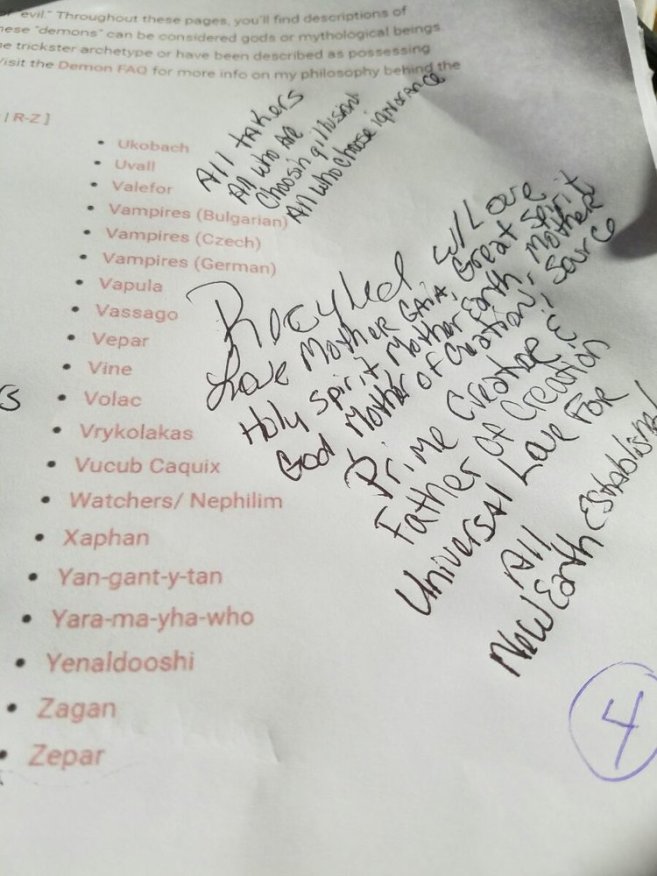 or evil." Throughout these pages, you'll find descriptions of
hese "demons" can be considered gods or mythological beings
e trickster archetype or have been described as possessing
Visit the Demon FAQ for more info on my philosophy behind the
| R-Z ]
• Ukobach
• Uvall
• Valefor
• Vampires (Bulgarian)
• Vampires (Czech)
• Vampires (German)
• Vapula
• Vassago
• Vepar
• Vine
• Volac
• Vrykolakas
• Vucub Caquix
• Watchers/ Nephilim
• Xaphan
• Yan-gant-y-tan
• Yara-ma-yha-who
• Yenaldooshi
• Zagan
• Zepar
All takers
All who are
Choosing illusion
All who choose ignorance
Recycled w/ Love
Love Mother GAIA, Great Spirit
Holy Spirit, Mother Earth, Mother
God, Mother of Creation, Source
Prime Creator &
Father Of Creation
Universal Love For
All
New Earth Established
4